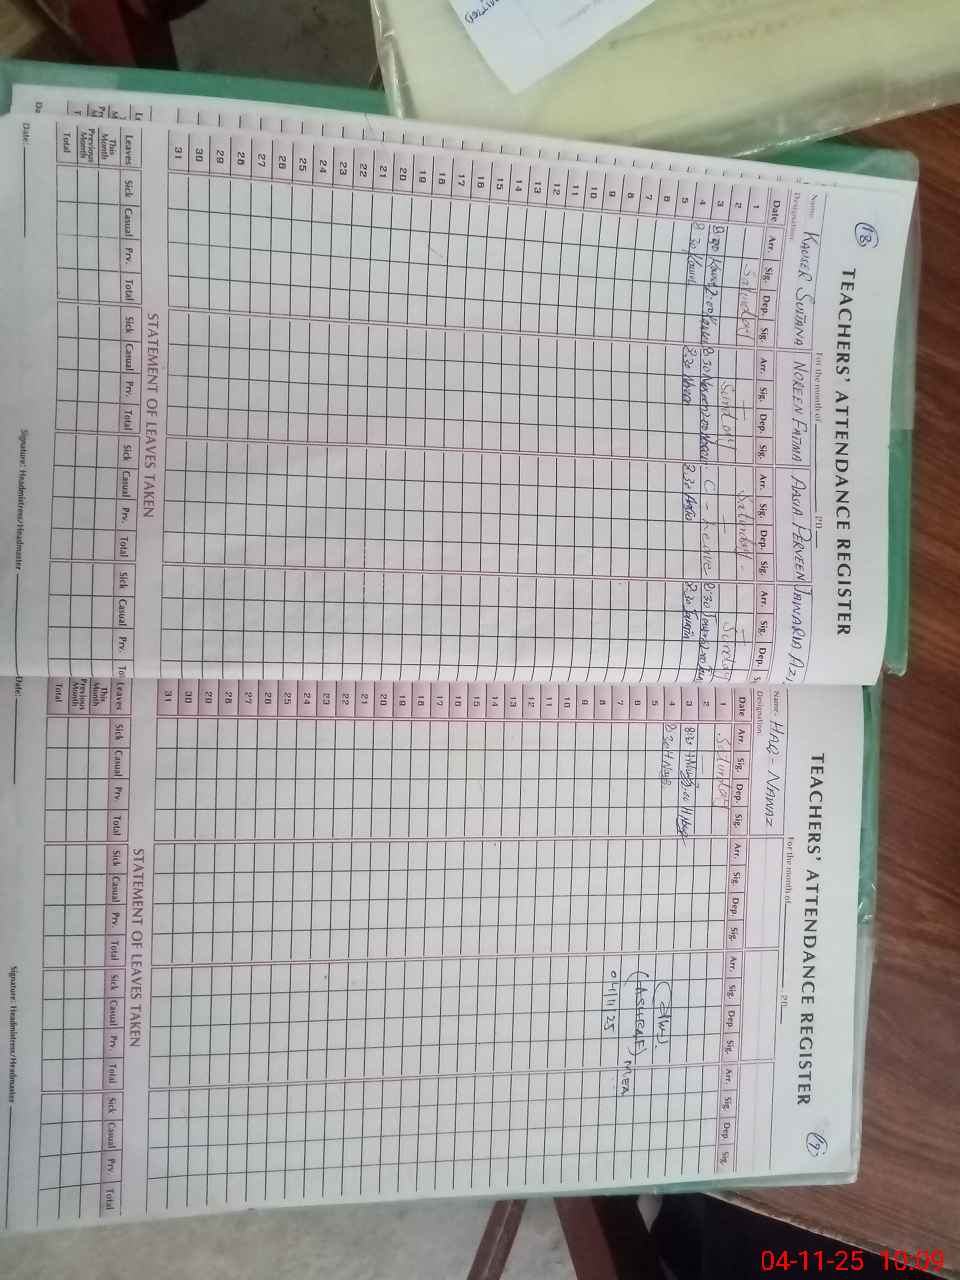 18
TEACHERS' ATTENDANCE REGISTER
For the month of 20
Name: KAUSER SULTANA NOREEN FATMA ASIA PERVEEN JAWARIA AZI
Designation:
Date Arr. Sig. Dep. Sig. Arr. Sig. Dep. Sig. Arr. Sig. Dep. Sig. Arr. Sig. Dep. S
1 Saturday Saturday
2 Sunday Sunday
3 8:30 2:00 8:30 2:00 C-Leave 8:30 2:00
4 8:30 8:30 8:30 8:30
5
6
7
8
9
10
11
12
13
14
15
16
17
18
19
20
21
22
23
24
25
26
27
28
29
30
31
STATEMENT OF LEAVES TAKEN
Leaves Sick Casual Prv. Total Sick Casual Prv. Total Sick Casual Prv. Total Sick Casual Prv. To
This Month
Previous Month
Total
Date: Signature: Headmistress/Headmaster
TEACHERS' ATTENDANCE REGISTER
For the month of 20
Name: HAQ-NAWAZ
Designation:
Date Arr. Sig. Dep. Sig. Arr. Sig. Dep. Sig. Arr. Sig. Dep. Sig. Arr. Sig. Dep. Sig.
1 Saturday
2
3 8:30 2:00
4 8:30
5
6 (ASHRAF) MEA
7
8 04/11/25
9
10
11
12
13
14
15
16
17
18
19
20
21
22
23
24
25
26
27
28
29
30
31
STATEMENT OF LEAVES TAKEN
Leaves Sick Casual Prv. Total Sick Casual Prv. Total Sick Casual Prv. Total Sick Casual Prv. Total
This Month
Previous Month
Total
Date: Signature: Headmistress/Headmaster
04-11-25 10:09